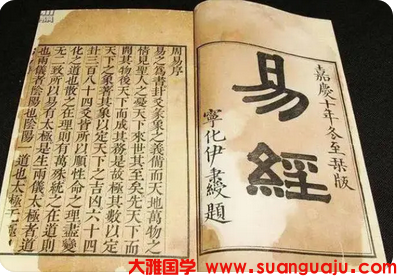 嘉慶十年冬至栞版
易經
寧化伊秉綬題
周易序
易之為書卦爻彖象之義備而天地萬物之
情見聖人之憂天下來世其至矣先天下而
開其物後天下而成其務是故極其數以定
天下之象著其象以定天下之吉凶六十四
卦三百八十四爻皆所以順性命之理盡變
化之道也散之在理則有萬殊統之在道則
无二致所以易有太極是生兩儀太極者道
也兩儀者陰陽也陰陽一道也太極无極
大雅国学 www.suanguaju.com